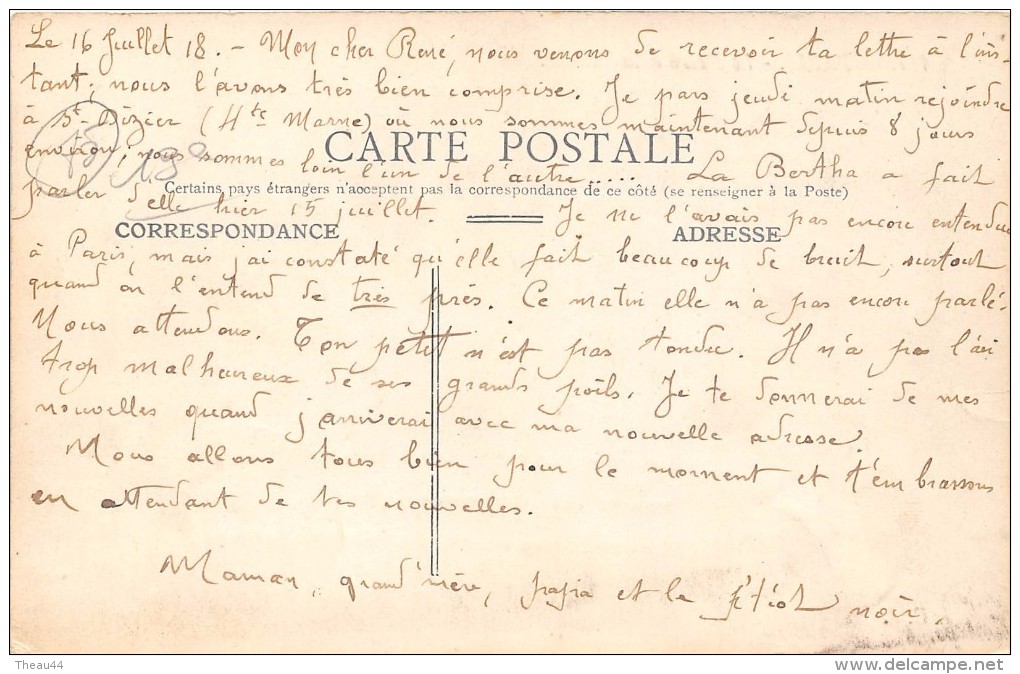 Le 16 Juillet 18. - Mon cher René, nous venons de recevoir ta lettre à l'ins-
tant; nous l'avons très bien comprise. Je pars jeudi matin rejoindre
à St-Dizier (Hte Marne) où nous sommes maintenant depuis 8 jours
environ; nous sommes loin l'un de l'autre..... La Bertha a fait
CARTE POSTALE
parler d'elle hier 15 juillet. Je ne l'avais pas encore entendue
Certains pays étrangers n'acceptent pas la correspondance de ce côté (se renseigner à la Poste)
CORRESPONDANCE ADRESSE
à Paris, mais j'ai constaté qu'elle fait beaucoup de bruit, surtout
quand on l'entend de très près. Ce matin elle n'a pas encore parlé.
Nous attendons. Ton petit n'est pas tondu. Il n'a pas l'air
trop malheureux de ses grands poils. Je te donnerai de mes
nouvelles quand j'arriverai avec ma nouvelle adresse.
Nous allons tous bien pour le moment et t'embrassons
en attendant de tes nouvelles.
Maman, grand'mère, papa et le p'tiot noir.
Theau44
www.delcampe.net